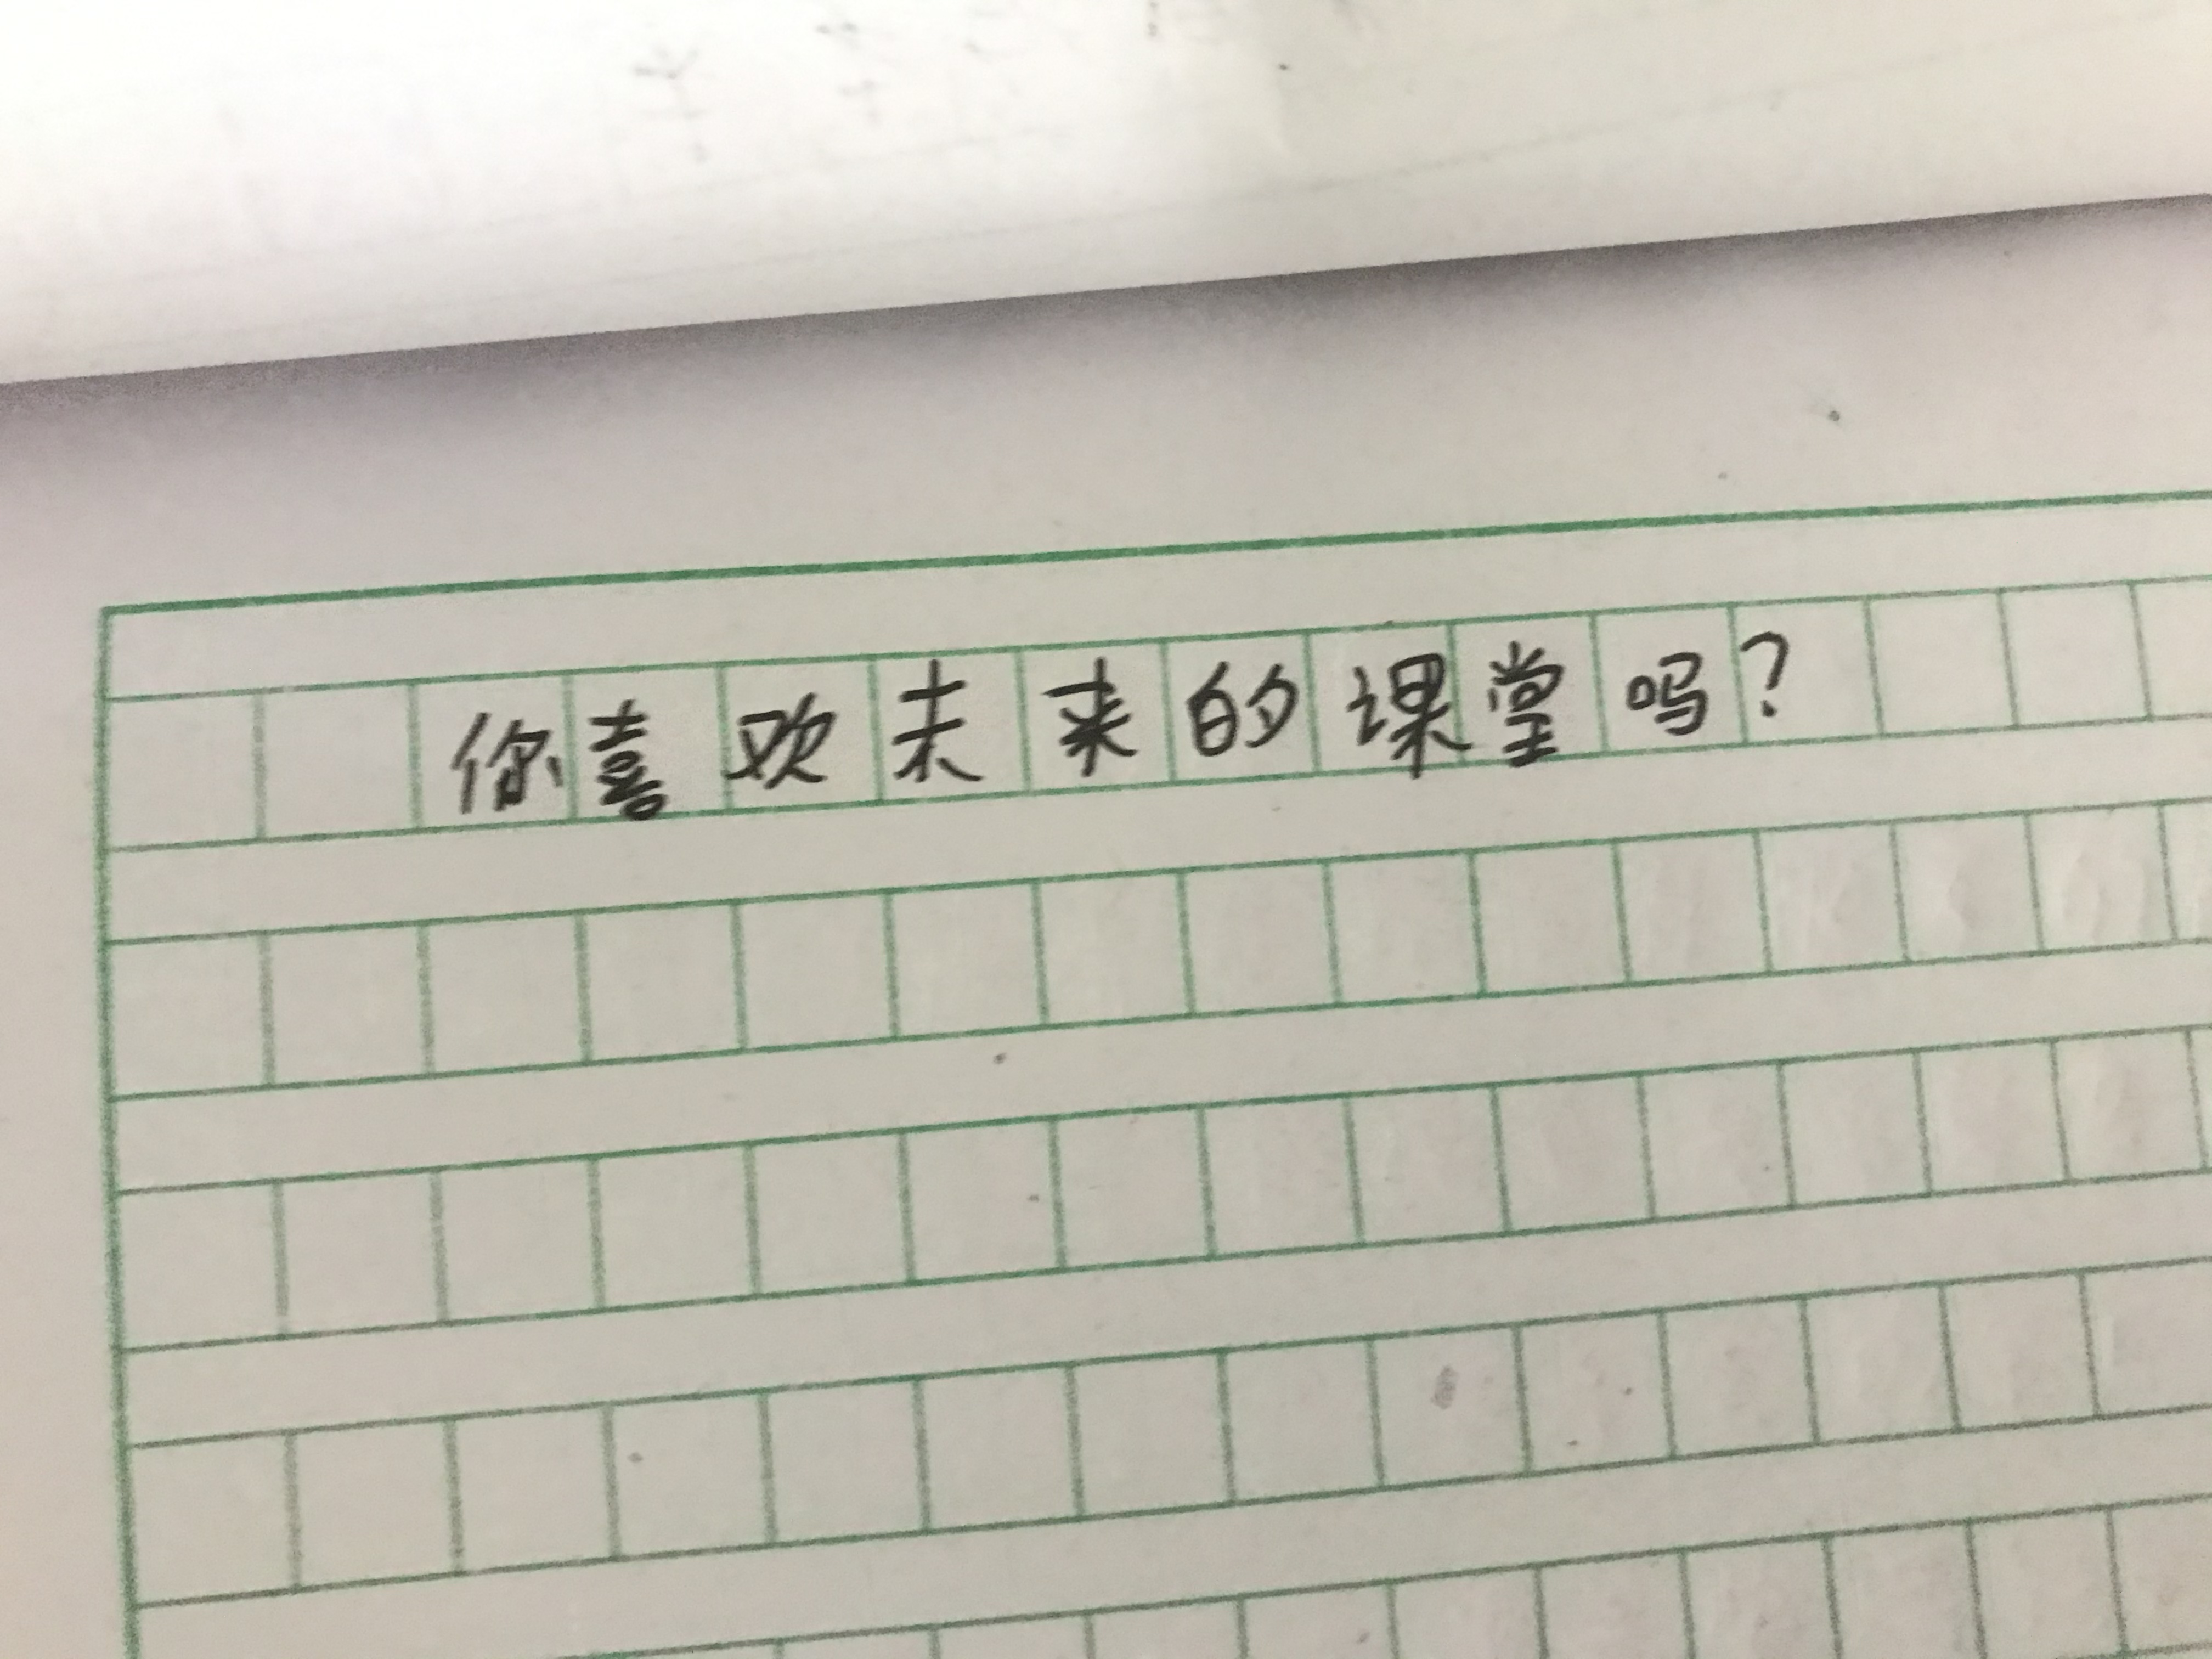 你喜欢未来的课堂吗？